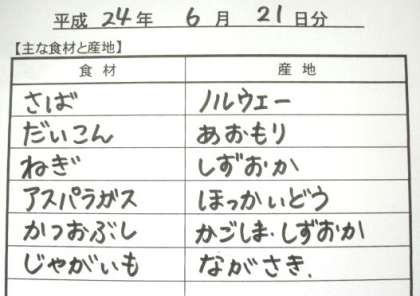 平成 24年 6月 21日分
【主な食材と産地】
食材 産地
さば ノルウェー
だいこん あおもり
ねぎ しずおか
アスパラガス ほっかいどう
かつおぶし かごしま・しずおか
じゃがいも ながさき.